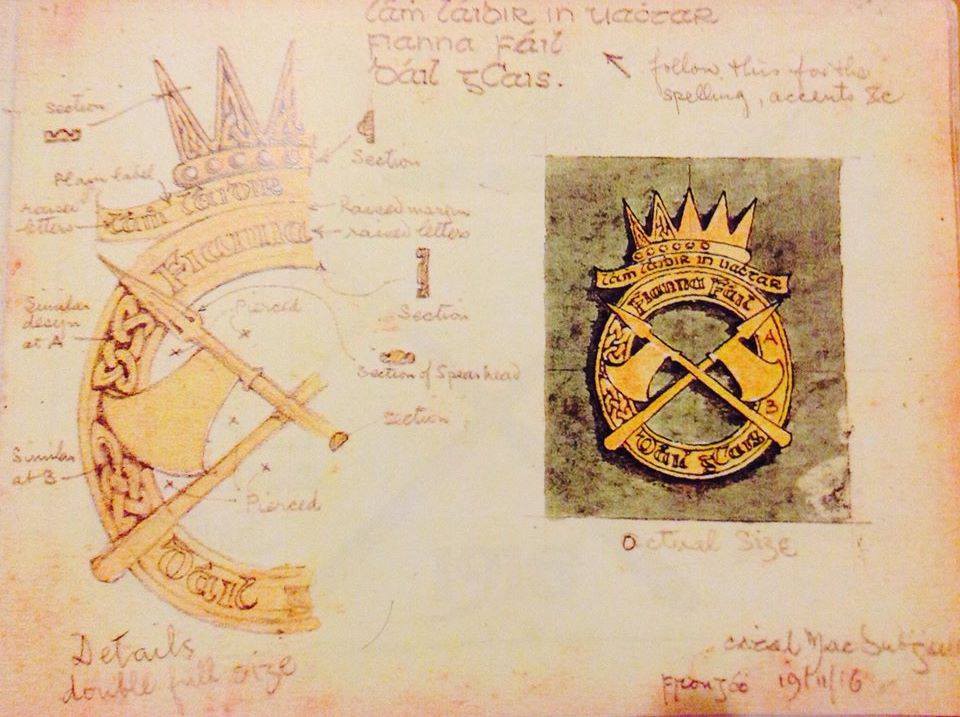 Lám láidir in uaċtar
Fianna Fáil
Dáil gCais.
follow this for the
spelling, accents &c
section
Section
Plain label
raised
letters
Raised margin
raised letters
lám láidir
Fianna
Section
Pierced
Similar
design
at A
Section of Spearhead
section
Similar
at B
Pierced
Dáil
lám láidir in uaċtar
Fianna Fáil
A
B
Dáil gCais
actual size
Details
double full size
Mac
Frongoċ 19/11/16